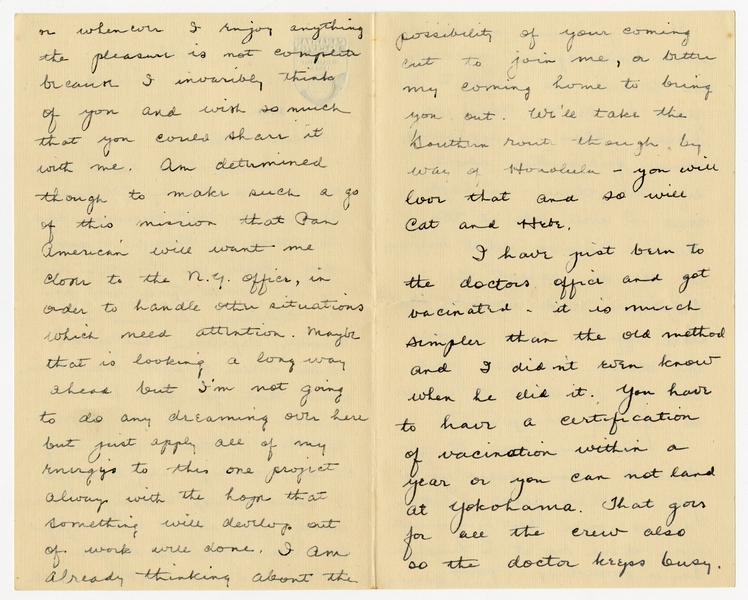 or whenever I enjoy anything
the pleasure is not complete
because I invaribly think
of you and wish so much
that you could share it
with me. Am determined
though to make such a go
of this mission that Pan
American will want me
closer to the N.Y. office, in
order to handle other situations
which need attention. Maybe
that is looking a long way
ahead but I'm not going
to do any dreaming over here
but just apply all of my
energys to this one project
always with the hope that
something will develop out
of work well done. I am
already thinking about the
possibility of your coming
out to join me, or better
my coming home to bring
you out. We'll take the
Southern route though, by
way of Honolulu - you will
love that and so will
Cat and Hebe.
I have just been to
the doctors office and got
vacinated - it is much
simpler than the old method
and I didn't even know
when he did it. You have
to have a certification
of vacination within a
year or you can not land
at Yokohama. That goes
for all the crew also
so the doctor keeps busy.